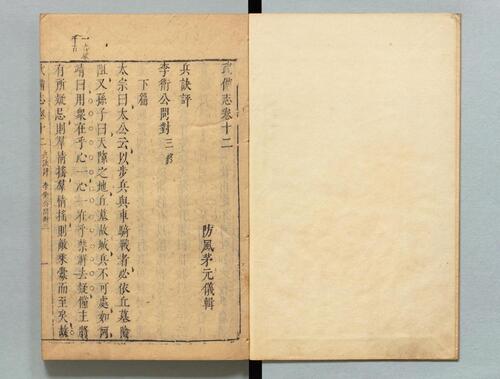 武備志卷十二
防風茅元儀輯
兵訣評
李衛公問對三
下篇
太宗曰太公云以步兵與車騎戰者必依丘墓險
阻又孫子曰天隙之地丘墓故城兵不可處如何
靖曰用衆在乎心一心一在乎禁祥去疑儻主將
有所疑忌則羣情搖羣情搖則敵乘釁而至矣故
武備志卷十二 兵訣評 李衛公問對三 一